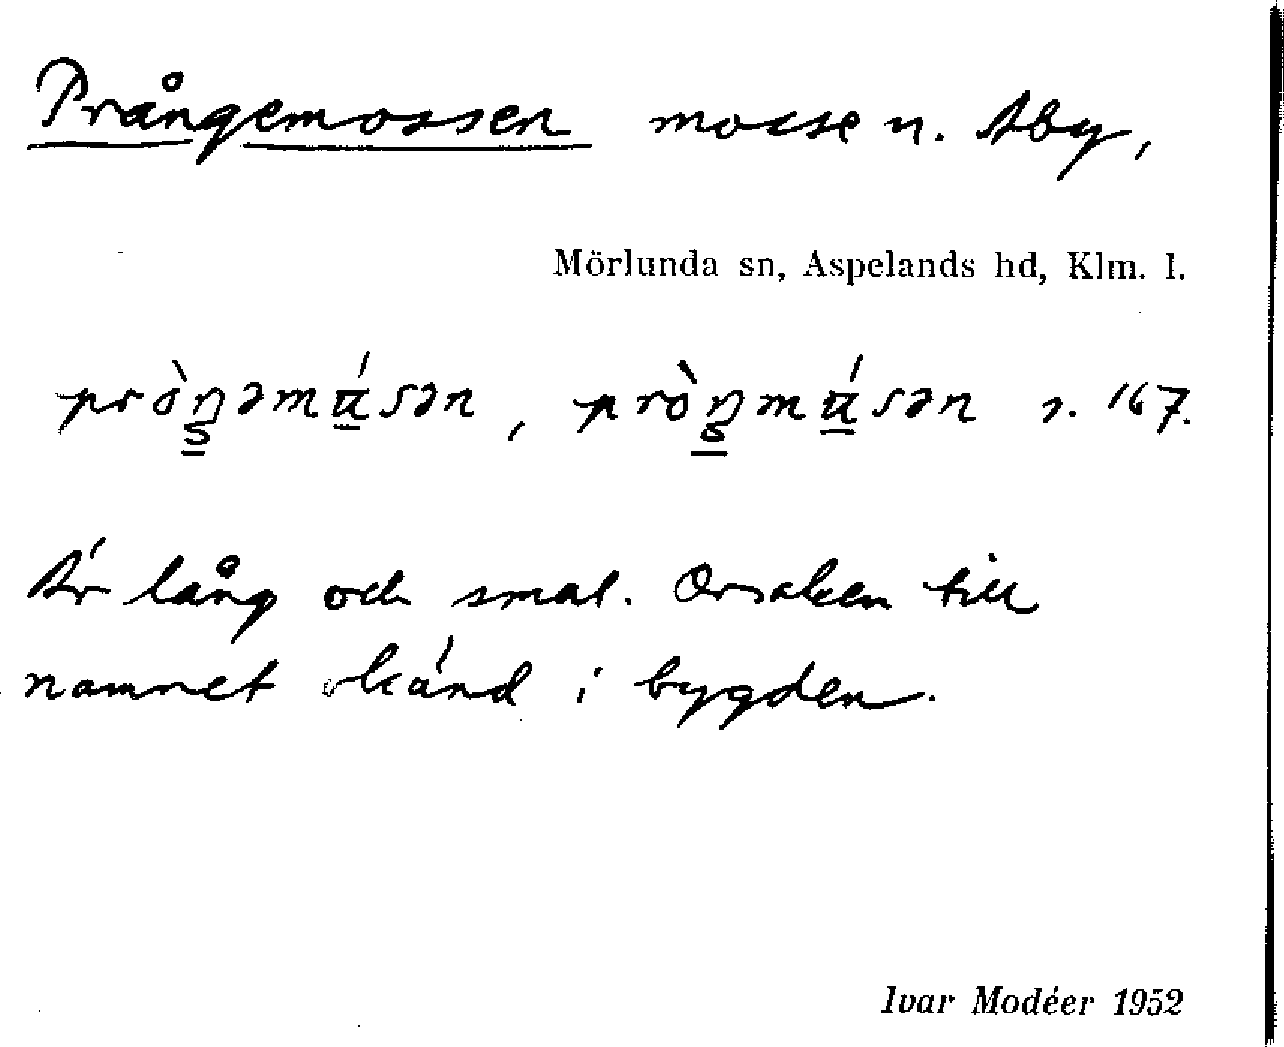 Prångemossen mosse n. Åby,
Mörlunda sn, Aspelands hd, Klm. l.
s. 167.
Är lång och smal. Orsaken till
namnet okänd i bygden.
Ivar Modéer 1952